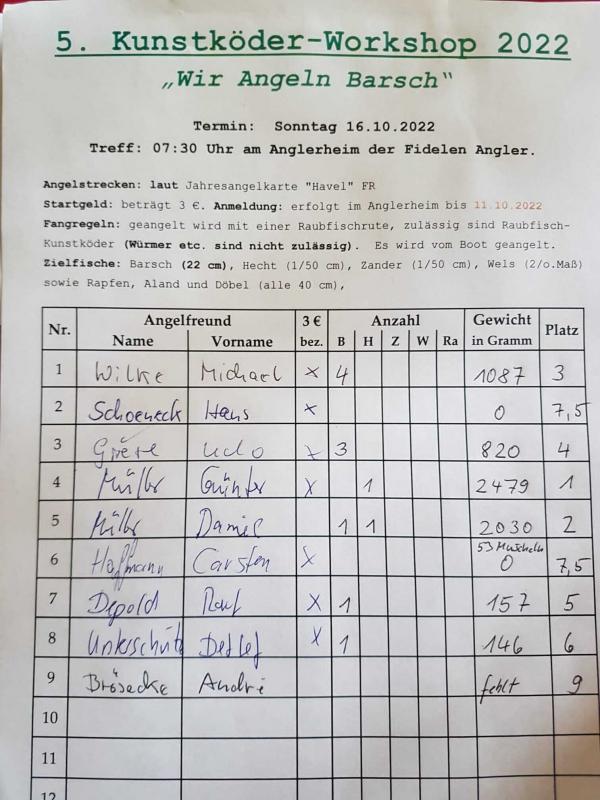 5. Kunstköder-Workshop 2022
„Wir Angeln Barsch"
Termin: Sonntag 16.10.2022
Treff: 07:30 Uhr am Anglerheim der Fidelen Angler.
Angelstrecken: laut Jahresangelkarte "Havel" FR
Startgeld: beträgt 3 €. Anmeldung: erfolgt im Anglerheim bis 11.10.2022
Fangregeln: geangelt wird mit einer Raubfischrute, zulässig sind Raubfisch-
Kunstköder (Würmer etc. sind nicht zulässig). Es wird vom Boot geangelt.
Zielfische: Barsch (22 cm), Hecht (1/50 cm), Zander (1/50 cm), Wels (2/o.Maß)
sowie Rapfen, Aland und Döbel (alle 40 cm),
Nr. Angelfreund 3 € Anzahl Gewicht Platz
Name Vorname bez. B H Z W Ra in Gramm
1 Wilke Michael x 4 1087 3
2 Schoeneck Hans x 0 7,5
3 Udo x 3 820 4
4 Müller Günter x 1 2479 1
5 Müller Daniel 1 1 2030 2
53 Muscheln
6 Hoffmann Carsten x 0 7,5
7 Depold Ralf x 1 157 5
8 Unterschütz Detlef x 1 146 6
9 Brösecke André fehlt 9
10
11
12